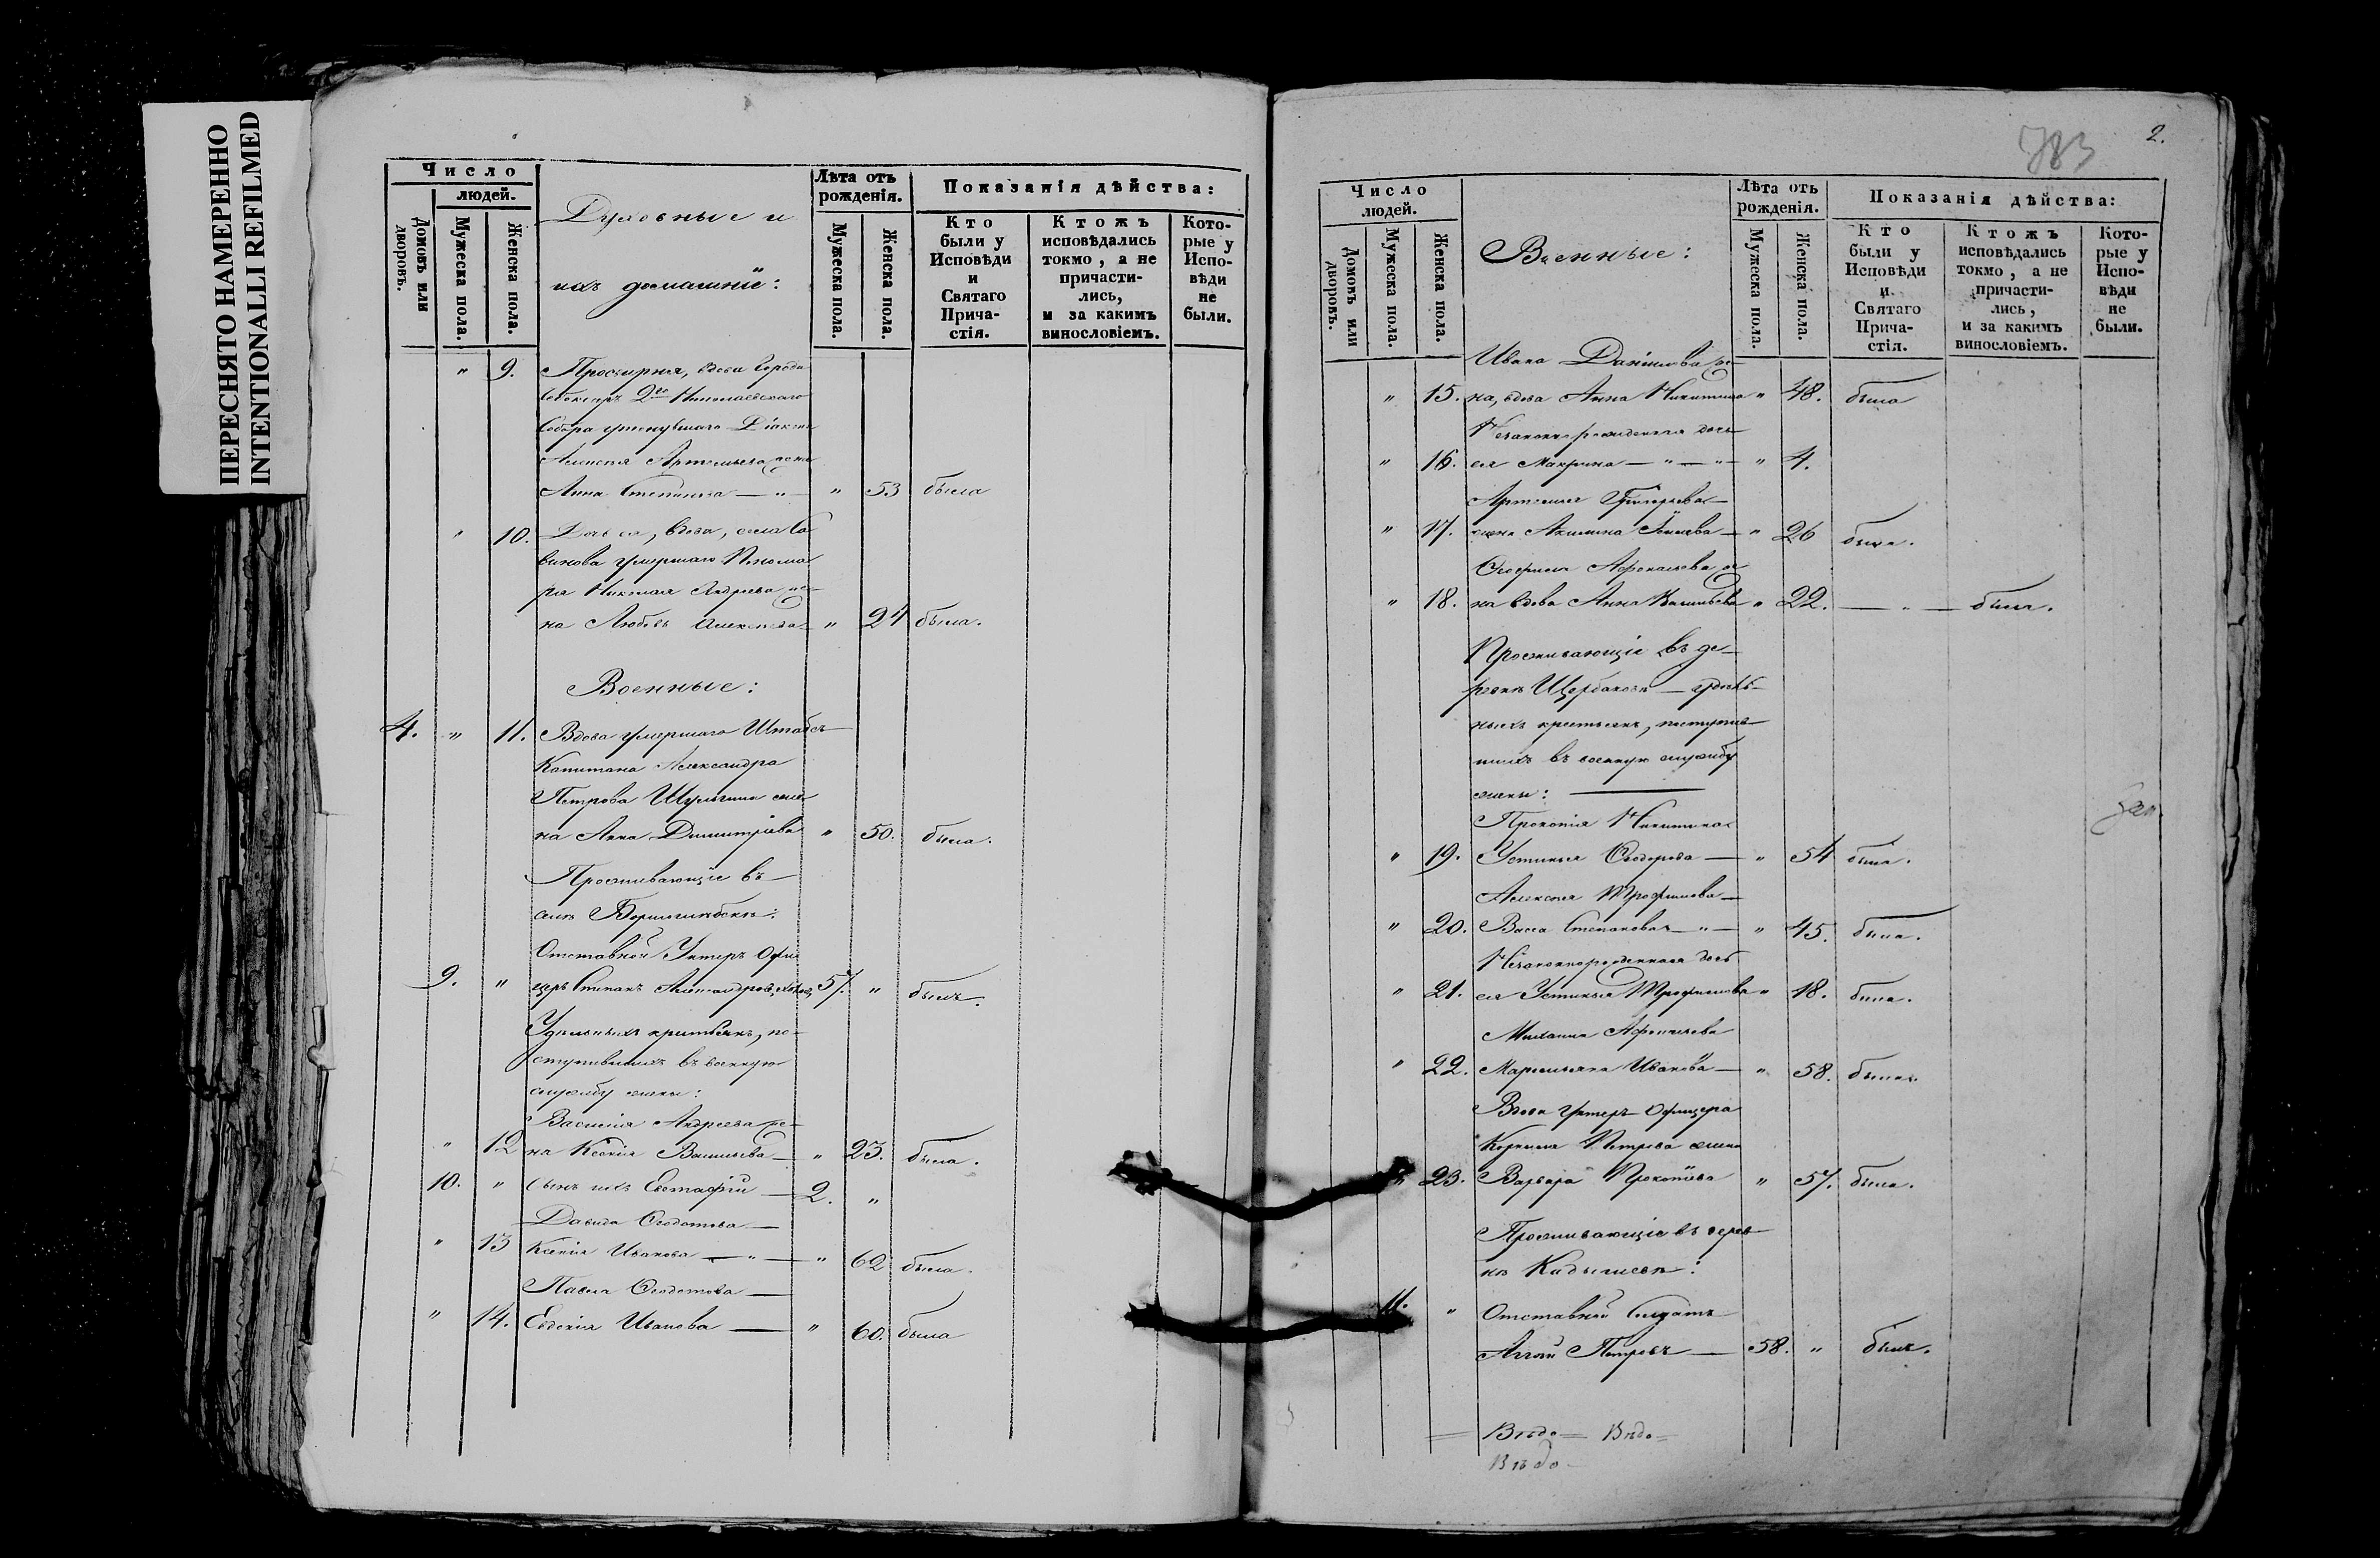 ПЕРЕСНЯТО НАМЕРЕННО
INTENTIONALLI REFILMED
Число
людей.
Домовъ или дворовъ.
Мужеска пола.
Женска пола.
Духовные и
ихъ домашніе:
Лѣта отъ рожденія.
Мужеска пола.
Женска пола.
Показанія дѣйства:
Кто были у Исповѣди и Святаго Прича-стія.
Ктожъ исповѣдались токмо, а не причасти-лись, и за какимъ винословіемъ.
Кото-рые у Испо-вѣди не были.
" 9. Просвирня, вдова города
2го Николаевскаго
Собора Діакона
Алексѣя Артемьева жена
Анна Степанова — " — " 53 была
" 10. Дочь ея, вдова, села
умершаго Понома
ря Николая Андреева же-
на Любовь Алексѣева " 24 была.
Военные:
4. " 11. Вдова умершаго Штабсъ
Капитана Александра
Петрова Шульгина же
на Анна Димитріева " 50. была.
Проживающіе въ
селѣ
Отставной Унтеръ Офи
9. " церъ Степанъ Александровъ 57. " былъ.
Удѣльныхъ крестьянъ, по-
ступившихъ въ военную
службу жены:
Василія Андреева же-
" 12 на Ксенія Васильева — " 23. была.
10. " Сынъ ихъ Евстафій — 2. "
Давида Ѳедотова —
" 13 Ксенія Иванова — " — " 62 была.
Павла Ѳедотова —
" 14. Евдокія Иванова — " 60. была
783
2.
Число
людей.
Домовъ или дворовъ.
Мужеска пола.
Женска пола.
Военные:
Лѣта отъ рожденія.
Мужеска пола.
Женска пола.
Показанія дѣйства:
Кто были у Исповѣди и Святаго Прича-стія.
Ктожъ исповѣдались токмо, а не причасти-лись, и за какимъ винословіемъ.
Кото-рые у Испо-вѣди не были.
Ивана Данилова же-
" 15. на, вдова Анна Никитина " 48. была
Незаконнорожденная дочь
" 16. ея Макрина — " — " — " 4.
Артемія Григорьева
" 17. жена Акилина — " 26 была.
Афонасьева же
" 18. на вдова Анна Васильева " 22. — " — была.
Проживающіе въ де-
ревнѣ Щербаковѣ — удѣль-
ныхъ крестьянъ, поступив
шихъ въ военную службу
жены: —
Прокопія Никитина
" 19. Устинья Ѳедорова — " 54 была.
Алексѣя Трофимова —
" 20. Васса Степанова — " — " 45. была.
Незаконнорожденная дочь
" 21. ея Устинья Трофимова " 18. была.
Михаила Афонасьева
" 22. Маремьяна Иванова — " 58. была.
Вдова Унтеръ Офицера
Корнила Петрова жена
" 23. Варвара Прокопіева " 57. была.
Проживающіе въ дерев-
нѣ Кадышевѣ:
11. " Отставной Солдатъ
Аггѣй Петровъ — 58. " былъ.
Вѣдо= Вѣдо=
Вѣдо